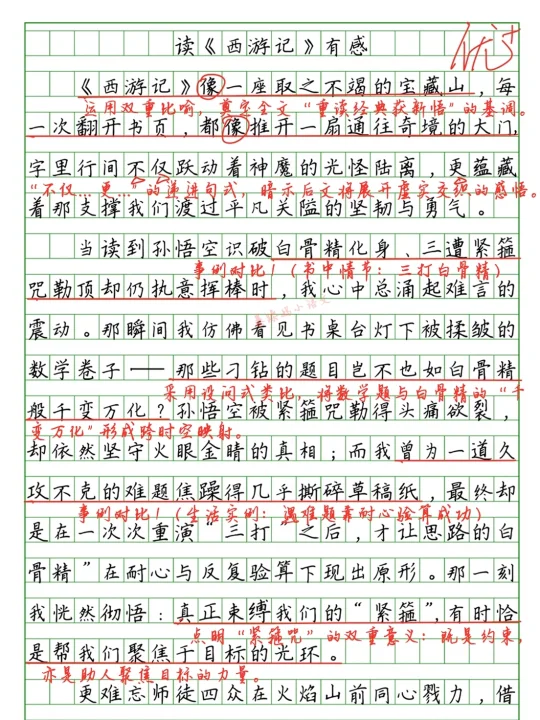 读《西游记》有感
优+
《西游记》像一座取之不竭的宝藏山，每
运用双重比喻，奠定全文“重读经典获新悟”的基调。
一次翻开书页，都像推开一扇通往奇境的大门，
字里行间不仅跃动着神魔的光怪陆离，更蕴藏
“不仅…更…”的递进句式，暗示后文将展开虚实交织的感悟。
着那支撑我们渡过平凡关隘的坚韧与勇气。
当读到孙悟空识破白骨精化身、三遭紧箍
事例对比1（书中情节：三打白骨精）
咒勒顶却仍执意挥棒时，我心中总涌起难言的
震动。那瞬间我仿佛看见书桌台灯下被揉皱的
数学卷子——那些刁钻的题目岂不也如白骨精
采用设问式类比，将数学题与白骨精的“千
般千变万化？孙悟空被紧箍咒勒得头痛欲裂，
变万化”形成跨时空映射。
却依然坚守火眼金睛的真相；而我曾为一道久
攻不克的难题焦躁得几乎撕碎草稿纸，最终却
事例对比1（生活实例：遇难题靠耐心验算成功）
是在一次次重演“三打”之后，才让思路的白
骨精”在耐心与反复验算下现出原形。那一刻
我恍然彻悟：真正束缚我们的“紧箍”，有时恰
点明“紧箍咒”的双重意义：既是约束，
是帮我们聚焦于目标的光环。
亦是助人聚焦目标的力量。
更难忘师徒四众在火焰山前同心戮力，借